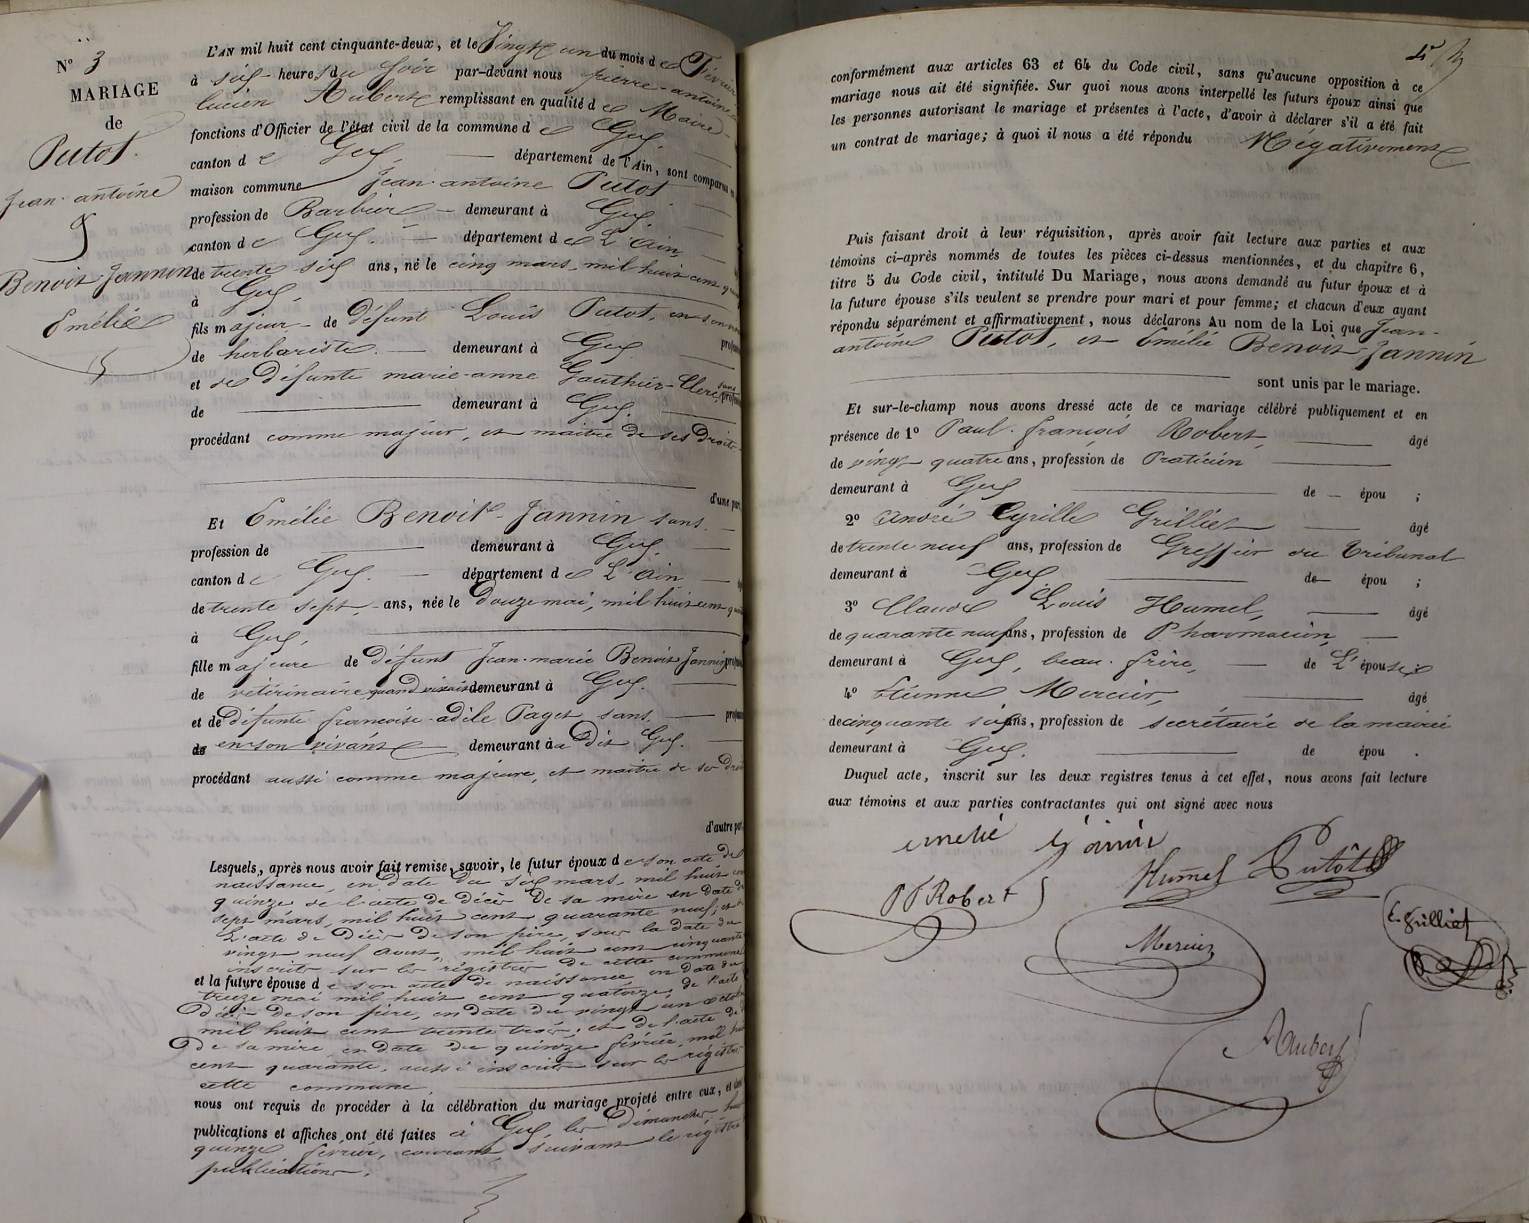 N° 3
MARIAGE
de
Putot
Jean-antoine
&
Benoit-Jannin
Emélie
L'AN mil huit cent cinquante-deux, et le Vingt un du mois de Février
à six heures du Soir par-devant nous pierre-antoine
lucien Aubert remplissant en qualité de Maire
fonctions d'Officier de l'état civil de la commune de Gex
canton de Gex département de l'Ain, sont comparus en
maison commune Jean-antoine Putot
profession de Barbier demeurant à Gex
canton de Gex département de L'ain
de trente six ans, né le cinq mars mil huit cent
à Gex,
fils majeur de défunt Louis Putot, en son
de herboriste demeurant à Gex
et de défunte marie-anne Gauthier-Clerc, sans
de demeurant à Gex
procédant comme majeur, et maitre de ses droits
d'une part
Et Emélie Benoit-Jannin sans
profession de demeurant à Gex
canton de Gex département de L'ain
de trente sept ans, née le Douze mai, mil huit cent
à Gex,
fille majeure de défunt Jean-marie Benoit Jannin
de vétérinaire quand vivait demeurant à Gex
et de défunte francoise-adèle Paget sans
de en son vivant demeurant à a Dit Gex
procédant aussi comme majeure, et maitre de ses droits
d'autre part
Lesquels, après nous avoir fait remise, savoir, le futur époux de son acte de
naissance, en date du six mars, mil huit cent
quinze de l'acte de décès de sa mère en date du
sept mars, mil huit cent quarante neuf, et
L'acte de Décès De son père, sous la date du
vingt neuf aout, mil huit cent cinquante
inscrits sur les régistres de cette commune
et la future épouse de son acte de naissance en date du
treize mai mil huit cent quatorze, de l'acte
Décès de son père, en date du vingt un octobre
mil huit cent trente trois; et de l'acte de
De sa mère, en date du quinze février, mil huit
cent quarante, aussi inscrits sur les régistres
cette commune
nous ont requis de procéder à la célébration du mariage projeté entre eux, et dont
publications et affiches ont été faites à Gex, les dimanches huit
quinze février, courant, suivant le régistre
publications.
4
conformément aux articles 63 et 64 du Code civil, sans qu'aucune opposition à ce
mariage nous ait été signifiée. Sur quoi nous avons interpellé les futurs époux ainsi que
les personnes autorisant le mariage et présentes à l'acte, d'avoir à déclarer s'il a été fait
un contrat de mariage; à quoi il nous a été répondu Négativement
Puis faisant droit à leur réquisition, après avoir fait lecture aux parties et aux
témoins ci-après nommés de toutes les pièces ci-dessus mentionnées, et du chapitre 6,
titre 5 du Code civil, intitulé Du Mariage, nous avons demandé au futur époux et à
la future épouse s'ils veulent se prendre pour mari et pour femme; et chacun d'eux ayant
répondu séparément et affirmativement, nous déclarons Au nom de la Loi que Jean-
antoine Putot, et Emélie Benoit-Jannin
sont unis par le mariage.
Et sur-le-champ nous avons dressé acte de ce mariage célébré publiquement et en
présence de 1° Paul-françois Robert, âgé
de vingt quatre ans, profession de Praticien
demeurant à Gex de épou ;
2° andré Cyrille Grilliet âgé
de trente neuf ans, profession de Greffier du tribunal
demeurant à Gex de épou ;
3° Claude Louis Humel, âgé
de quarante neuf ans, profession de Pharmacien,
demeurant à Gex, beau-frère, de L'épouse
4° Etienne Mercier, âgé
de cinquante six ans, profession de secrétaire de la mairie
demeurant à Gex de épou .
Duquel acte, inscrit sur les deux registres tenus à cet effet, nous avons fait lecture
aux témoins et aux parties contractantes qui ont signé avec nous
emelie Janin
Humel Putôt
P F Robert
C. Grilliet
Mercier
Aubert